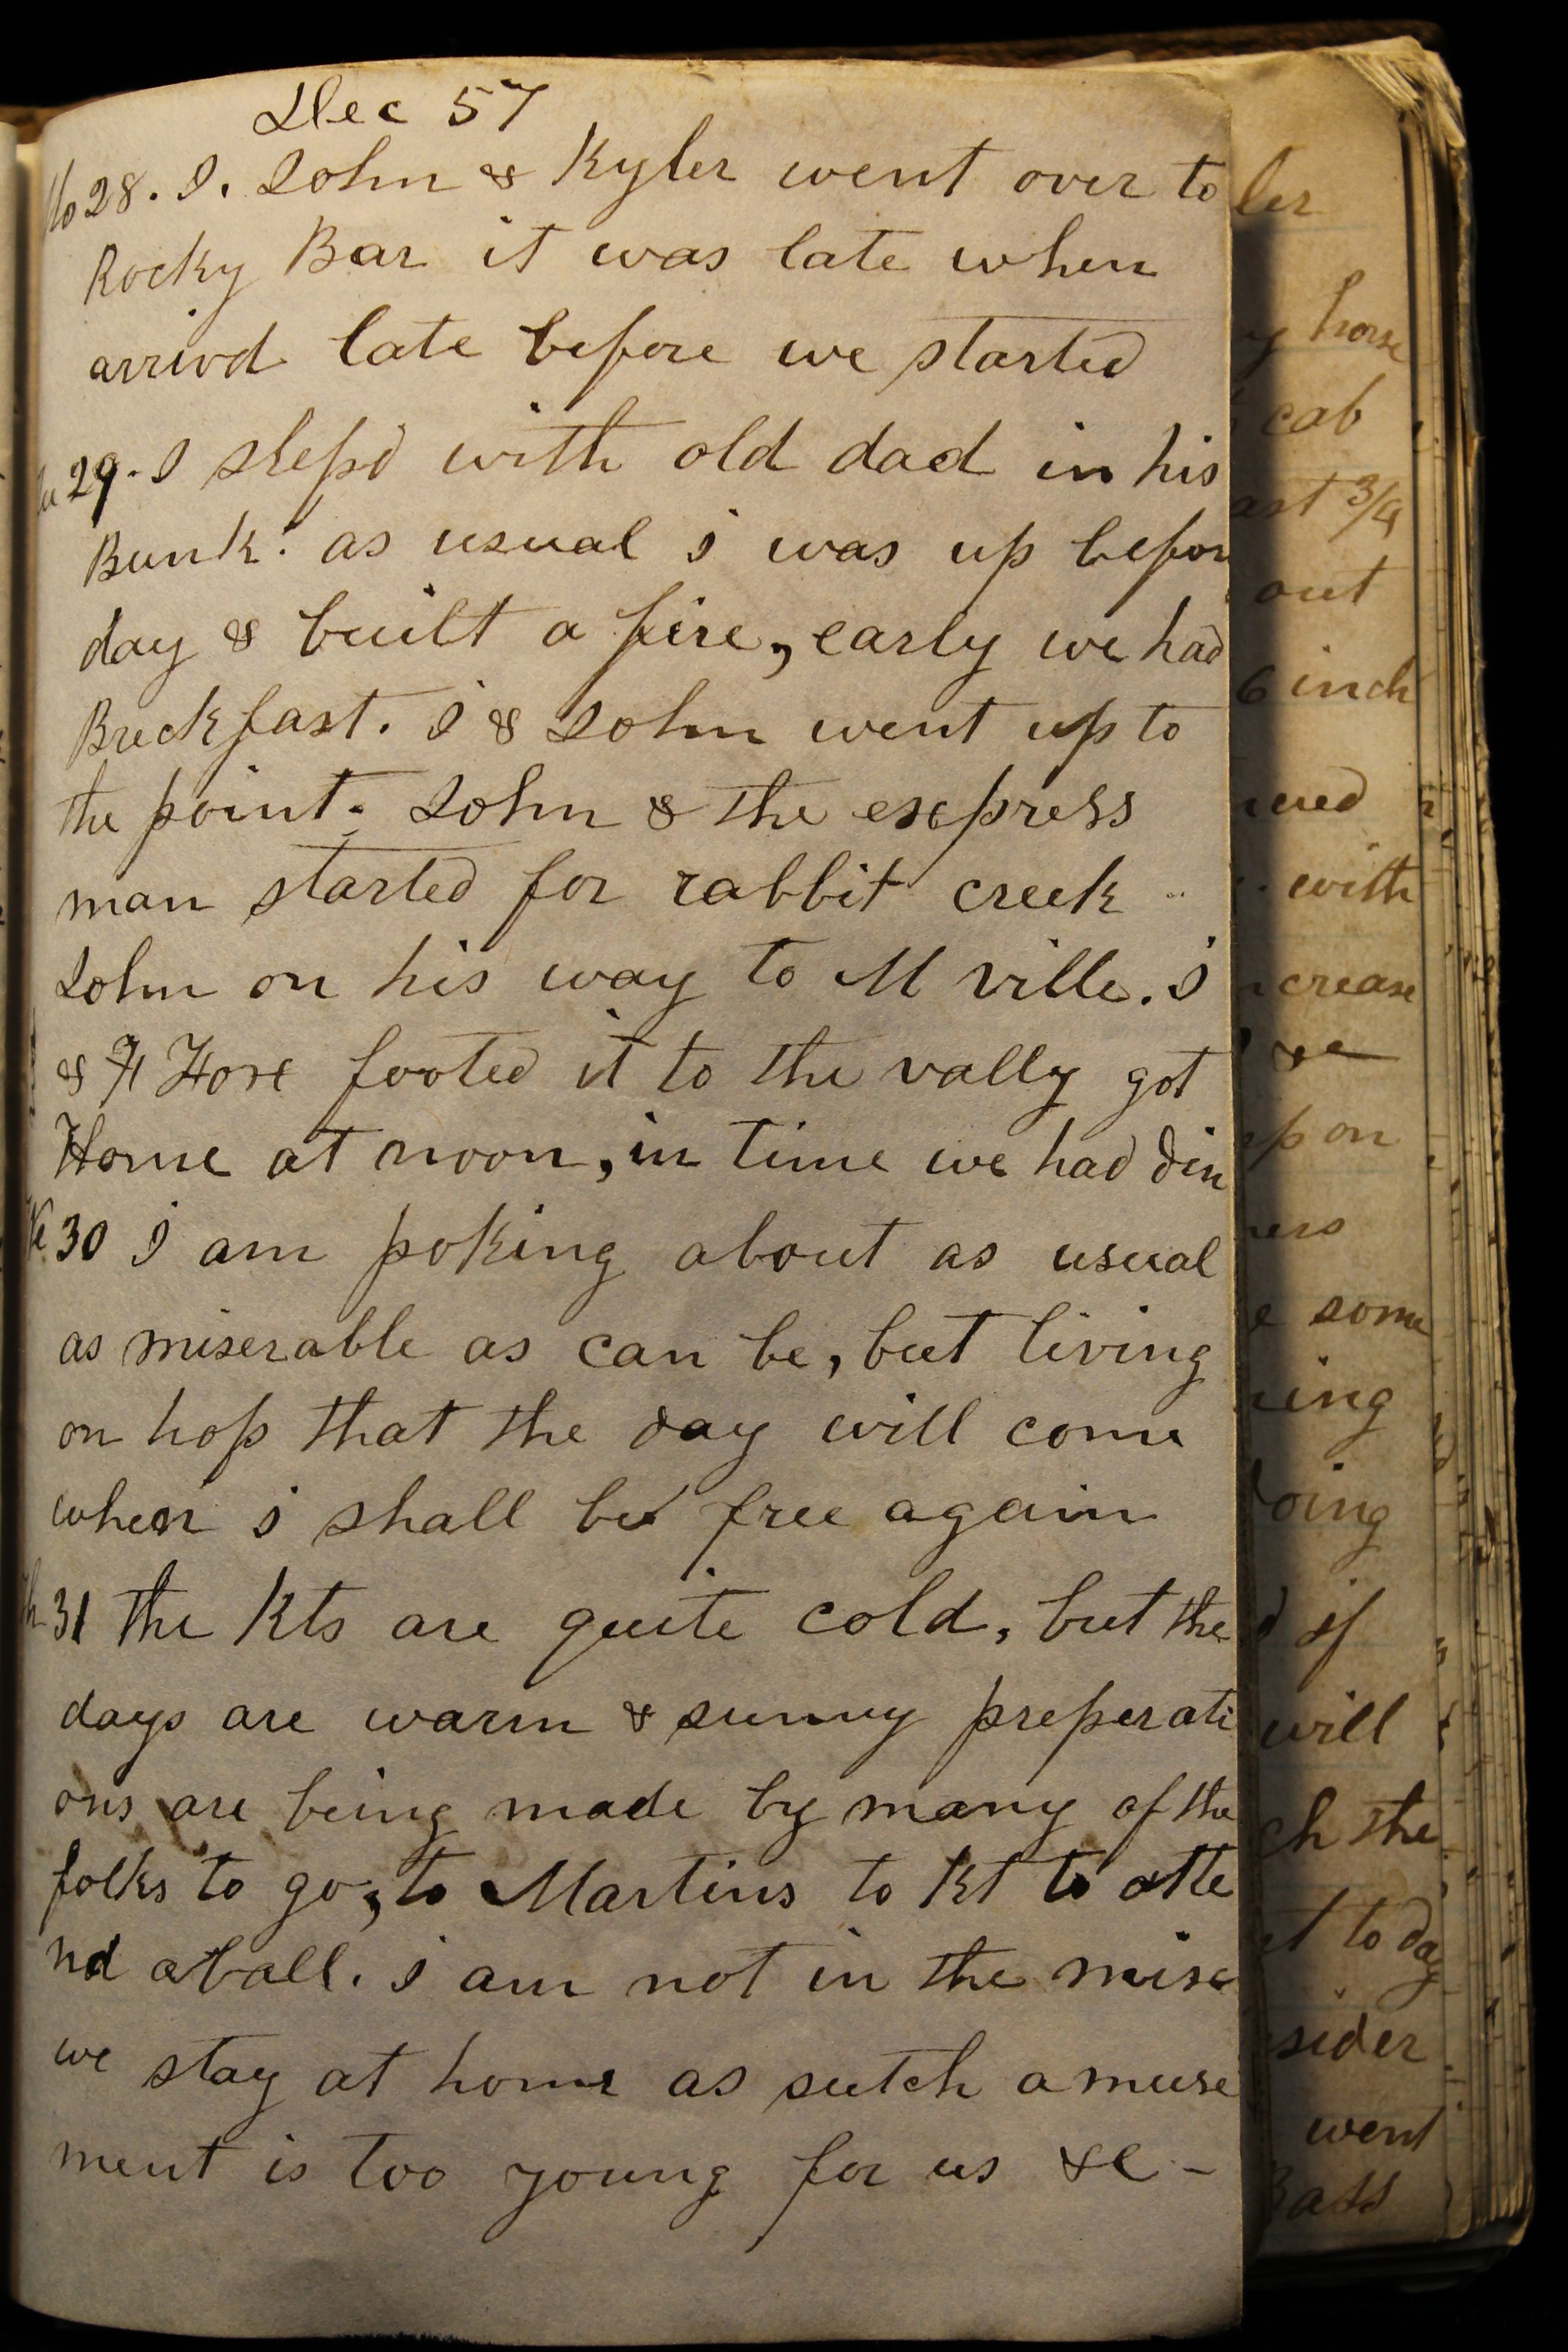 Dec 57
Mo 28. I. John & Kyler went over to
Rocky Bar it was late when
arrivd late before we started
Tu 29. I slepd with old dad in his
Bunk. as usual i was up befor
day & built a fire, early we had
Breckfast. I & John went up to
the point. John & the express
man started for rabbit creek
John on his way to M ville. I
& H Hose footed it to the vally got
Home at noon, in time we had din
We 30 I am poking about as usual
as miserable as can be, but living
on hop that the day will come
when i shall be free again
Th 31 the Kts are quite cold, but the
days are warm & sunny preperati
ons are being made by many of the
folks to go, to Martins to Kt to atte
nd a ball. i am not in the mise
we stay at home as sutch amuse
ment is too young for us &c -
ler
horse
cab
3/4
out
6 inch
with
crease
&c
on
some
if
will
the
to day
sider
went